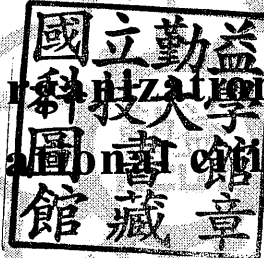 國立勤益
科技大學
圖書館
館藏章